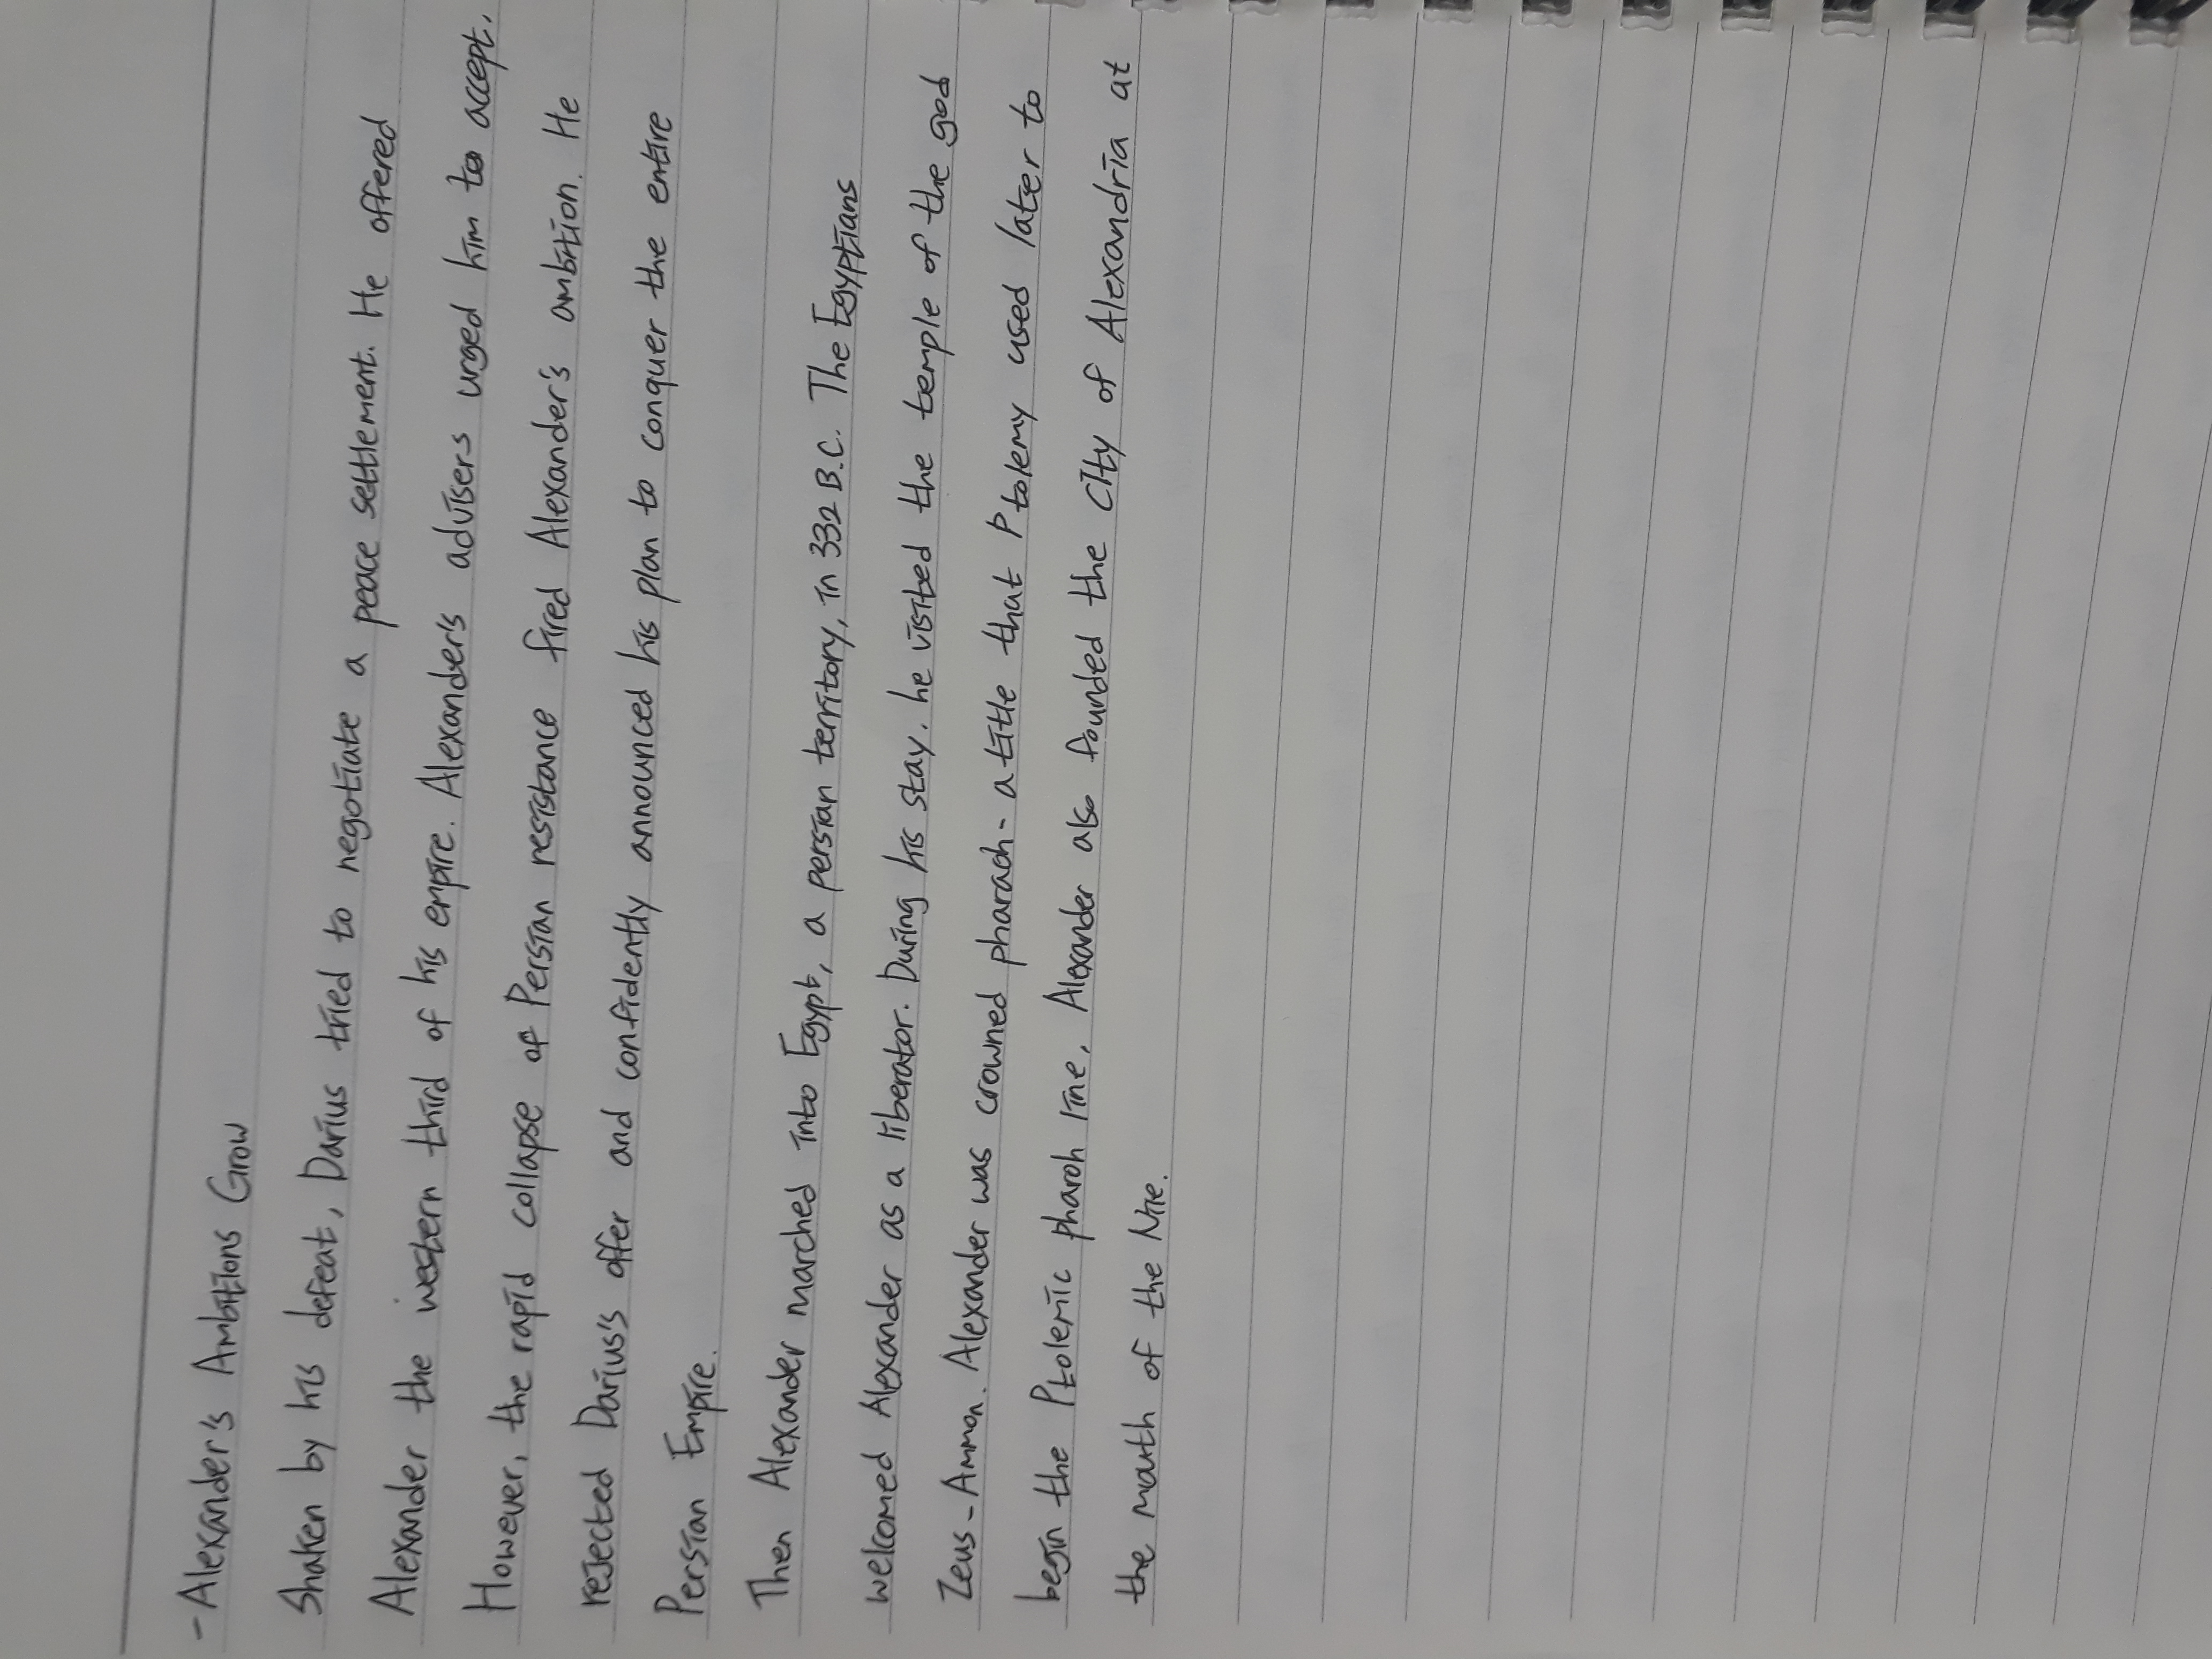 - Alexander's Ambitions Grow
Shaken by his defeat, Darius tried to negotiate a peace settlement. He offered
Alexander the western third of his empire. Alexander's advisers urged him to accept.
However, the rapid collapse of Persian resistance fired Alexander's ambition. He
rejected Darius's offer and confidently announced his plan to conquer the entire
Persian Empire.
Then Alexander marched into Egypt, a persian territory, in 332 B.C. The Egyptians
welcomed Alexander as a liberator. During his stay, he visited the temple of the god
Zeus-Ammon. Alexander was crowned pharaoh - a title that Ptolemy used later to
begin the Ptolemic pharoh line, Alexander also founded the city of Alexandria at
the mouth of the Nile.